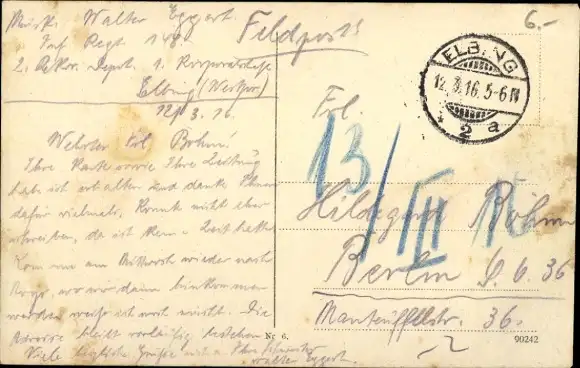 Musk. Walter Eggert.
Inf Regt. 148.
2. Rekr. Depot. 1. Korporalschaft
Elbing (Westpr)
12/3. 16.
Feldpost!
6.-
ELBING
12.3.16.5-6N
* 2 a
Werter Frl. Bohm.
Ihre Karte sowie Ihre Zeitung
hab ich erhalten und danke Ihnen
dafür vielmals, Konnte nicht eher
schreiben, da ich keine Zeit hatte
Kom nun am Mittwoch wieder nach
wo wir dann hinkommen
werden weiß ich noch nicht. Die
Adresse bleibt vorläufig bestehen
Viele Grüße Ihr
Walter Eggert.
Frl.
13/III 16
Hildegard Böhm
Berlin S.O. 36
Manteuffelstr. 36.
Nr. 6.
90242